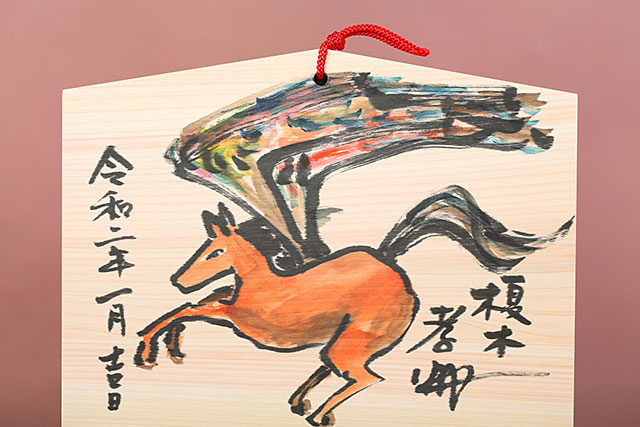 榎木
孝明
令和二年一月吉日